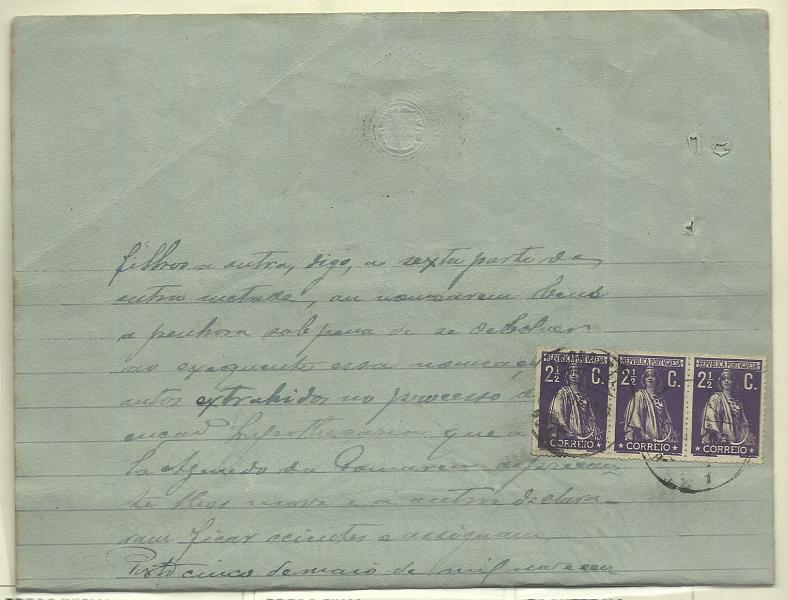 filhos a outra, digo, a sexta parte da
outra metade, ou nomearem bens
a penhora sob pena de se devolver
ao exequente essa nomeação
autos extrahidos no processo de
hypothecaria que
da
te lhes move e a outros declara-
ram ficar scientes e assignam
Porto cinco de maio de mil nove cen
REPVBLICA PORTVGVESA
2½ C.
CORREIO
REPVBLICA PORTVGVESA
2½ C.
CORREIO
REPVBLICA PORTVGVESA
2½ C.
CORREIO